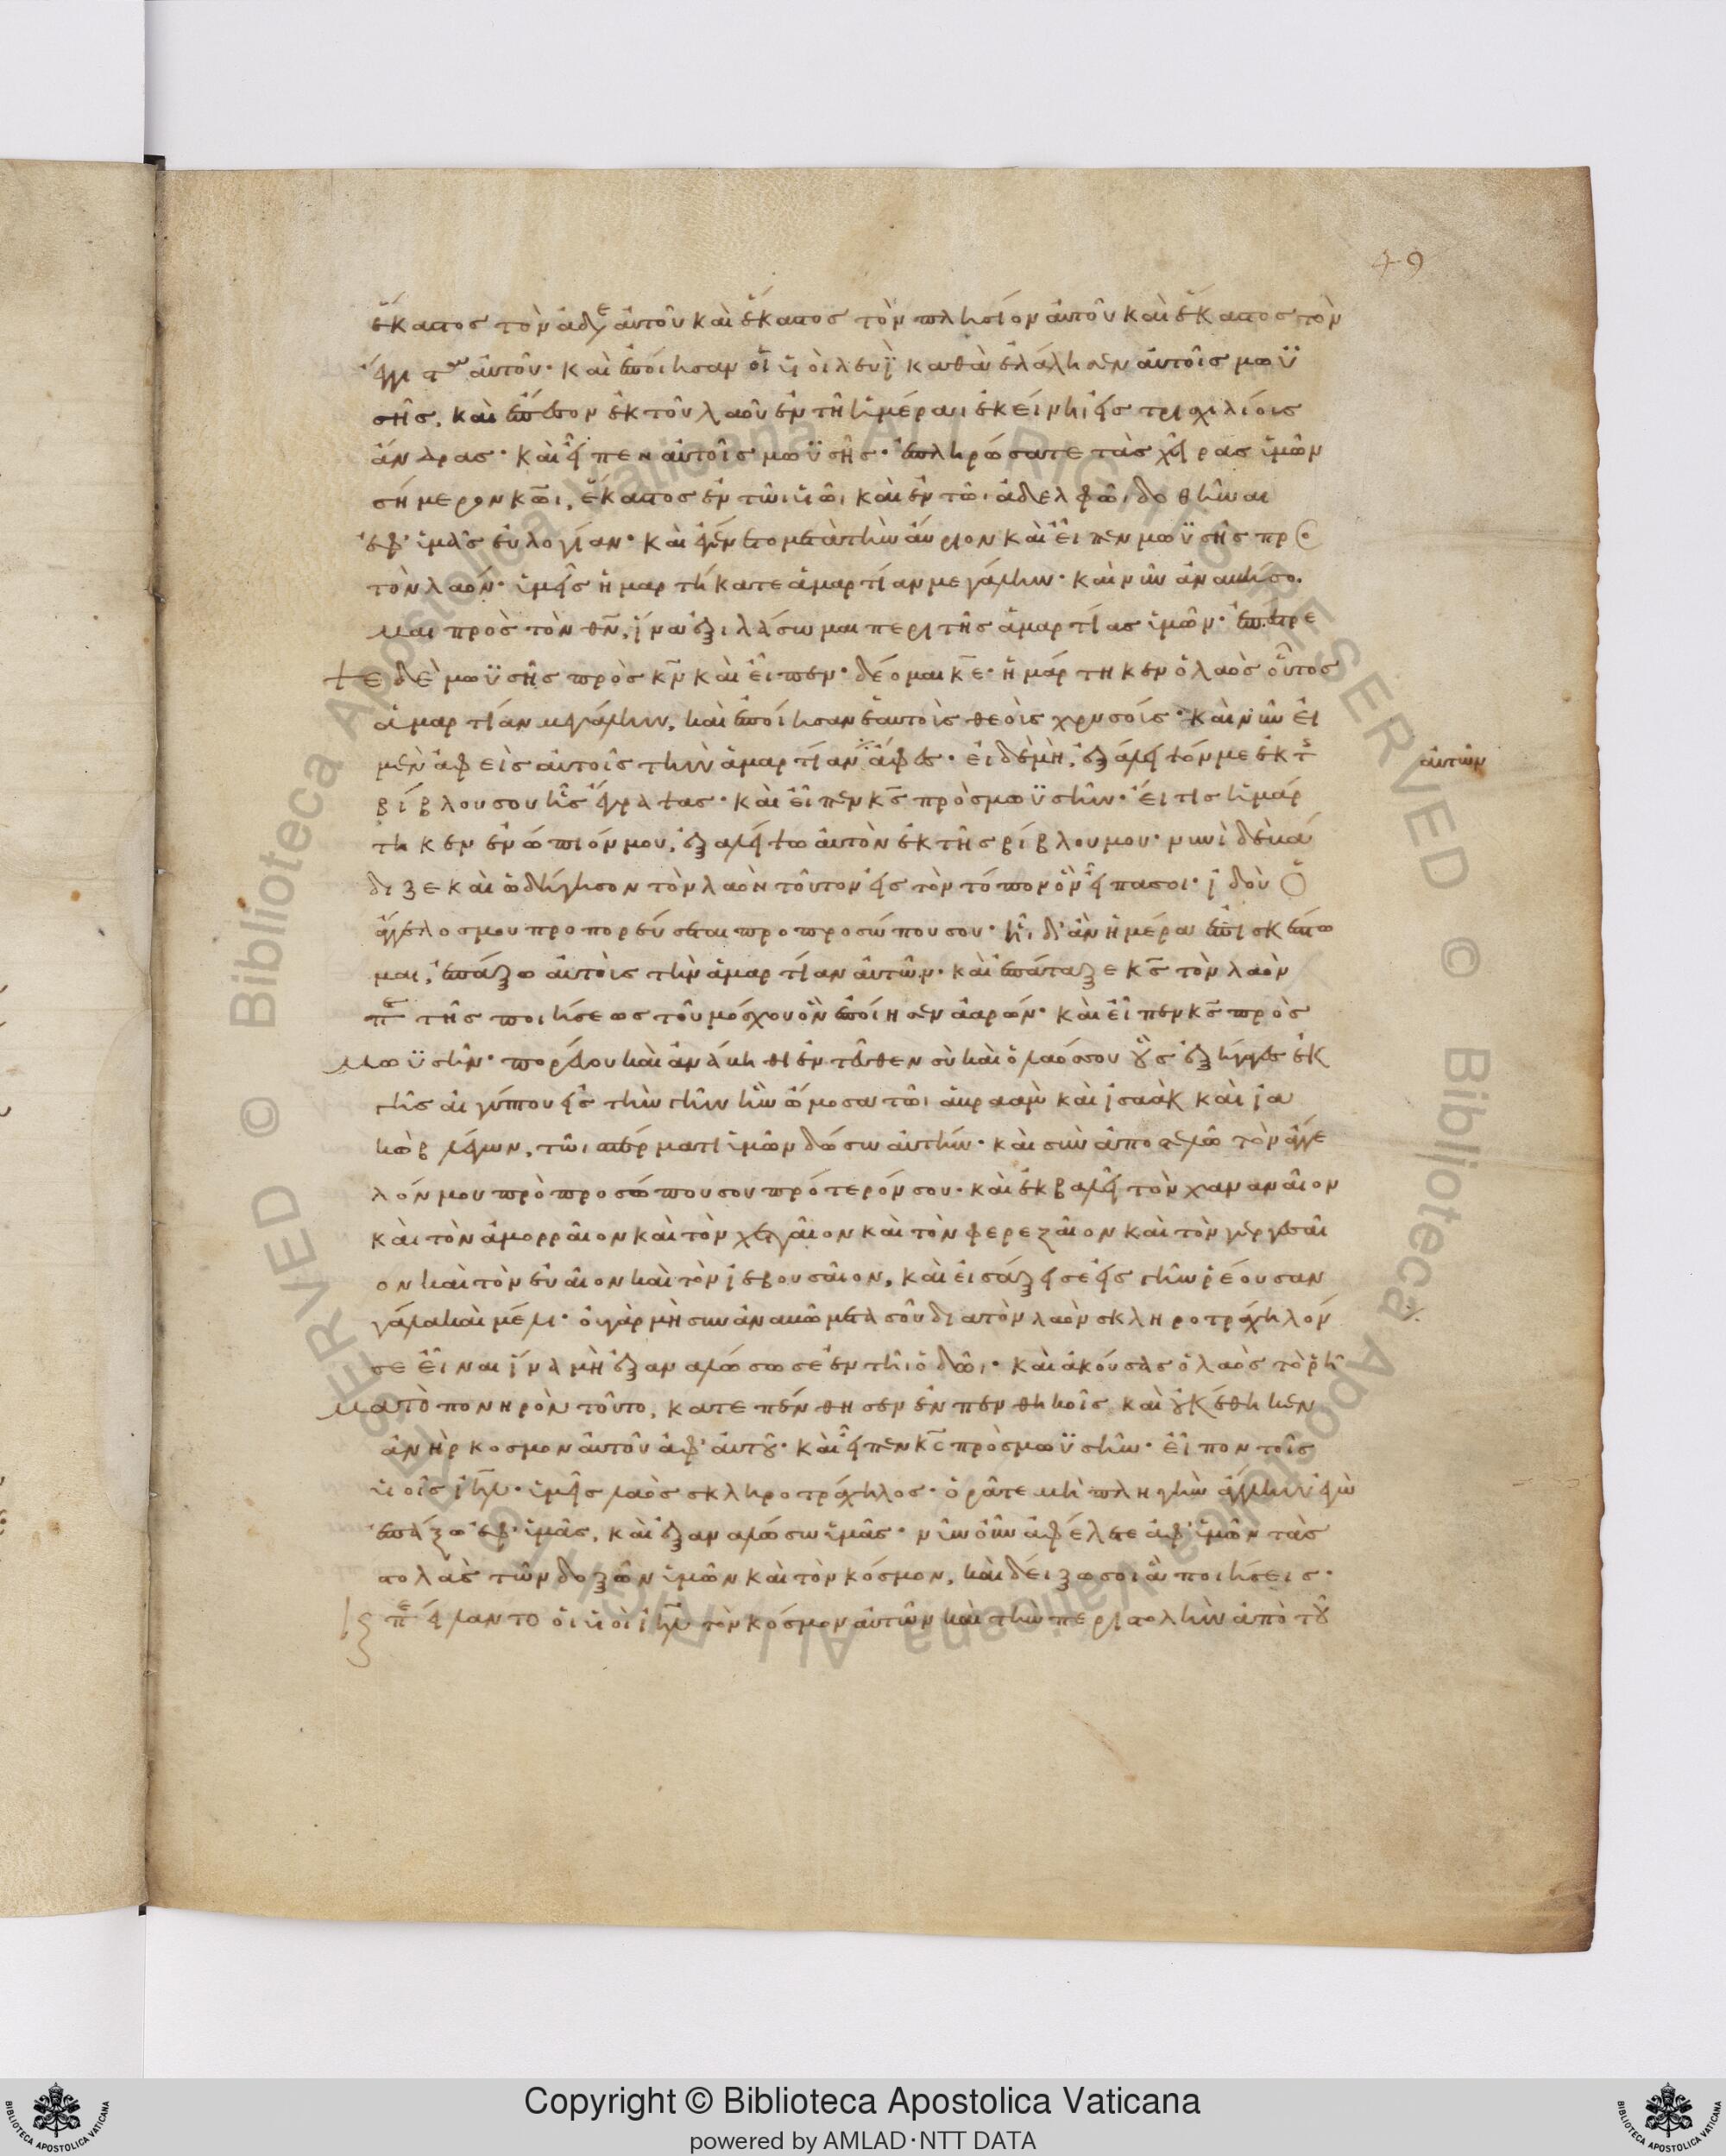 49
ἕκαστος τὸν ἀδελφὸν αὐτοῦ καὶ ἕκαστος τὸν πλησίον αὐτοῦ καὶ ἕκαστος τὸν
ἔγγιστα αὐτοῦ· καὶ ἐποίησαν οἱ υἱοὶ λευὶ καθὰ ἐλάλησεν αὐτοῖς μωϋ
σῆς, καὶ ἔπεσον ἐκ τοῦ λαοῦ ἐν τῆ ἡμέραι ἐκείνηι εἰς τρισχιλίους
ἄνδρας· καὶ εἶπεν αὐτοῖς μωϋσῆς· ἐπληρώσατε τὰς χεῖρας ὑμῶν
σήμερον κ̅ω̅ι, ἕκαστος ἐν τῶι υἱῶι καὶ ἐν τῶι ἀδελφῶι δοθῆναι
ἐφ' ὑμᾶς εὐλογίαν· καὶ ἐγένετο μετὰ τὴν αὔριον καὶ εἶπεν μωϋσῆς πρὸς
τὸν λαόν· ὑμεῖς ἡμαρτήκατε ἁμαρτίαν μεγάλην· καὶ νῦν ἀναβήσο
μαι πρὸς τὸν θ̅ν̅, ἵνα ἐξιλάσωμαι περὶ τῆς ἁμαρτίας ὑμῶν· ἐπέστρε
ψε δὲ μωϋσῆς πρὸς κ̅ν̅ καὶ εἶπεν· δέομαι κ̅ε̅· ἡμάρτηκεν ὁ λαὸς οὗτος
ἁμαρτίαν μεγάλην, καὶ ἐποίησαν ἑαυτοῖς θεοὺς χρυσούς· καὶ νῦν εἰ
μὲν ἀφεὶς αὐτοῖς τὴν ἁμαρτίαν ἄφες· εἰ δὲ μὴ, ἐξάλειψόν με ἐκ τῆς
αὐτῶν
βίβλου σου ἧς ἔγραψας· καὶ εἶπεν κ̅ς̅ πρὸς μωϋσῆν· εἴ τις ἡμάρ
τηκεν ἐνώπιόν μου, ἐξαλείψω αὐτὸν ἐκ τῆς βίβλου μου· νυνὶ δὲ βά
διζε καὶ ὁδήγησον τὸν λαὸν τοῦτον εἰς τὸν τόπον ὃν εἶπα σοι· ἰδοὺ ὁ
ἄγγελος μου προπορεύσεται προ προσώπου σου· ἧι δ' ἂν ἡμέρα ἐπισκέπτω
μαι, ἐπάξω αὐτοῖς τὴν ἁμαρτίαν αὐτῶν· καὶ ἐπάταξε κ̅ς̅ τὸν λαὸν
περὶ τῆς ποιήσεως τοῦ μόσχου ὃν ἐποίησεν ἀαρών· καὶ εἶπεν κ̅ς̅ πρὸς
μωϋσῆν· πορεύου καὶ ἀνάβηθι ἐντεῦθεν σὺ καὶ ὁ λαός σου οὓς ἐξήγαγες ἐκ
τῆς αἰγύπτου εἰς τὴν γῆν ἣν ὤμοσα τῶι ἀβρααμ καὶ ἰσαὰκ καὶ ἰα
κὼβ λέγων, τῶι σπέρματι ὑμῶν δώσω αὐτήν· καὶ συναποστελῶ τὸν ἄγγε
λόν μου πρὸ προσώπου σου πρότερόν σου· καὶ ἐκβαλεῖ τὸν χαναναῖον
καὶ τὸν ἀμορραῖον καὶ τὸν χετταῖον καὶ τὸν φερεζαῖον καὶ τὸν γεργεσαῖ
ον καὶ τὸν εὐαῖον καὶ τὸν ἰεβουσαῖον, καὶ εἰσάξει σε εἰς γῆν ῥέουσαν
γάλα καὶ μέλι· οὐ γὰρ μὴ συναναβῶ μετὰ σοῦ διὰ τὸν λαὸν σκληροτράχηλόν
σε εἶναι ἵνα μὴ ἐξαναλώσω σε ἐν τῆι ὁδῶι· καὶ ἀκούσας ὁ λαὸς τὸ ῥῆ
μα τὸ πονηρὸν τοῦτο, κατεπένθησεν ἐν πενθηκοῖς καὶ οὐκ ἔθηκεν
ἀνὴρ κοσμον αὐτοῦ ἀφ' αὐτοῦ· καὶ εἶπεν κ̅ς̅ πρὸς μωϋσῆν· εἶπον τοῖς
υἱοῖς ι̅η̅λ̅· ὑμεῖς λαὸς σκληροτράχηλος· ὁρᾶτε μὴ πληγὴν ἄλλην ἐγὼ
ἐπάξω ἐφ' ὑμᾶς, καὶ ἐξαναλώσω ὑμᾶς· νῦν οὖν ἀφέλεσθε ἀφ' ὑμῶν τὰς
στολὰς τῶν δοξῶν ὑμῶν καὶ τὸν κόσμον, καὶ δείξω σοι ἃ ποιήσεις·
περιείλαντο οἱ υἱοὶ ι̅η̅λ̅ τὸν κόσμον αὐτῶν καὶ τὴν περιστολὴν ἀπὸ τοῦ
Copyright © Biblioteca Apostolica Vaticana
powered by AMLAD·NTT DATA